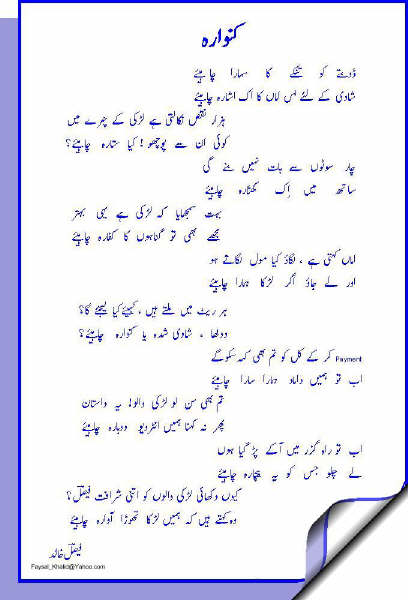 کنوارہ
ڈوبتے کو تنکے کا سہارا چاہیئے
شادی کے لئے بس اماں کا اک اشارہ چاہیئے
ہزار نقص نکالتی ہے لڑکی کے چہرے میں
کوئی ان سے پوچھو ! کیا ستارہ چاہیئے؟
چار سوٹوں سے بات نہیں بنے گی
ساتھ میں اِک کھٹارہ چاہیئے
بہت سمجھایا کہ لڑکی ہے یہی بہتر
مجھے بھی تو گناہوں کا کفارہ چاہیئے
اماں کہتی ہے ، لگاؤ کیا مول لگاتے ہو
اور لے جاؤ اگر لڑکا ہمارا چاہیئے
ہر ریٹ میں ملتے ہیں ، کہیئے کیا لیجئے گا؟
دولھا ، شادی شدہ یا کنوارہ چاہیئے؟
Payment کر کے کل کو تم بھی کہہ سکو گے
اب تو ہمیں داماد ہمارا سارا چاہیئے
تم بھی سن لو لڑکی والو! یہ داستان
پھر نہ کہنا ہمیں انٹرویو دوبارہ چاہیئے
اب تو راہ گزر میں آکے پڑ گیا ہوں
لے چلو جس کو یہ بیچارہ چاہیئے
کیوں دکھائی لڑکی والوں کو اتنی شرافت فیصلؔ؟
وہ کہتے ہیں کہ ہمیں لڑکا تھوڑا آوارہ چاہیئے
فیصلؔ خالد
Faysel_Khalid@Yahoo.com